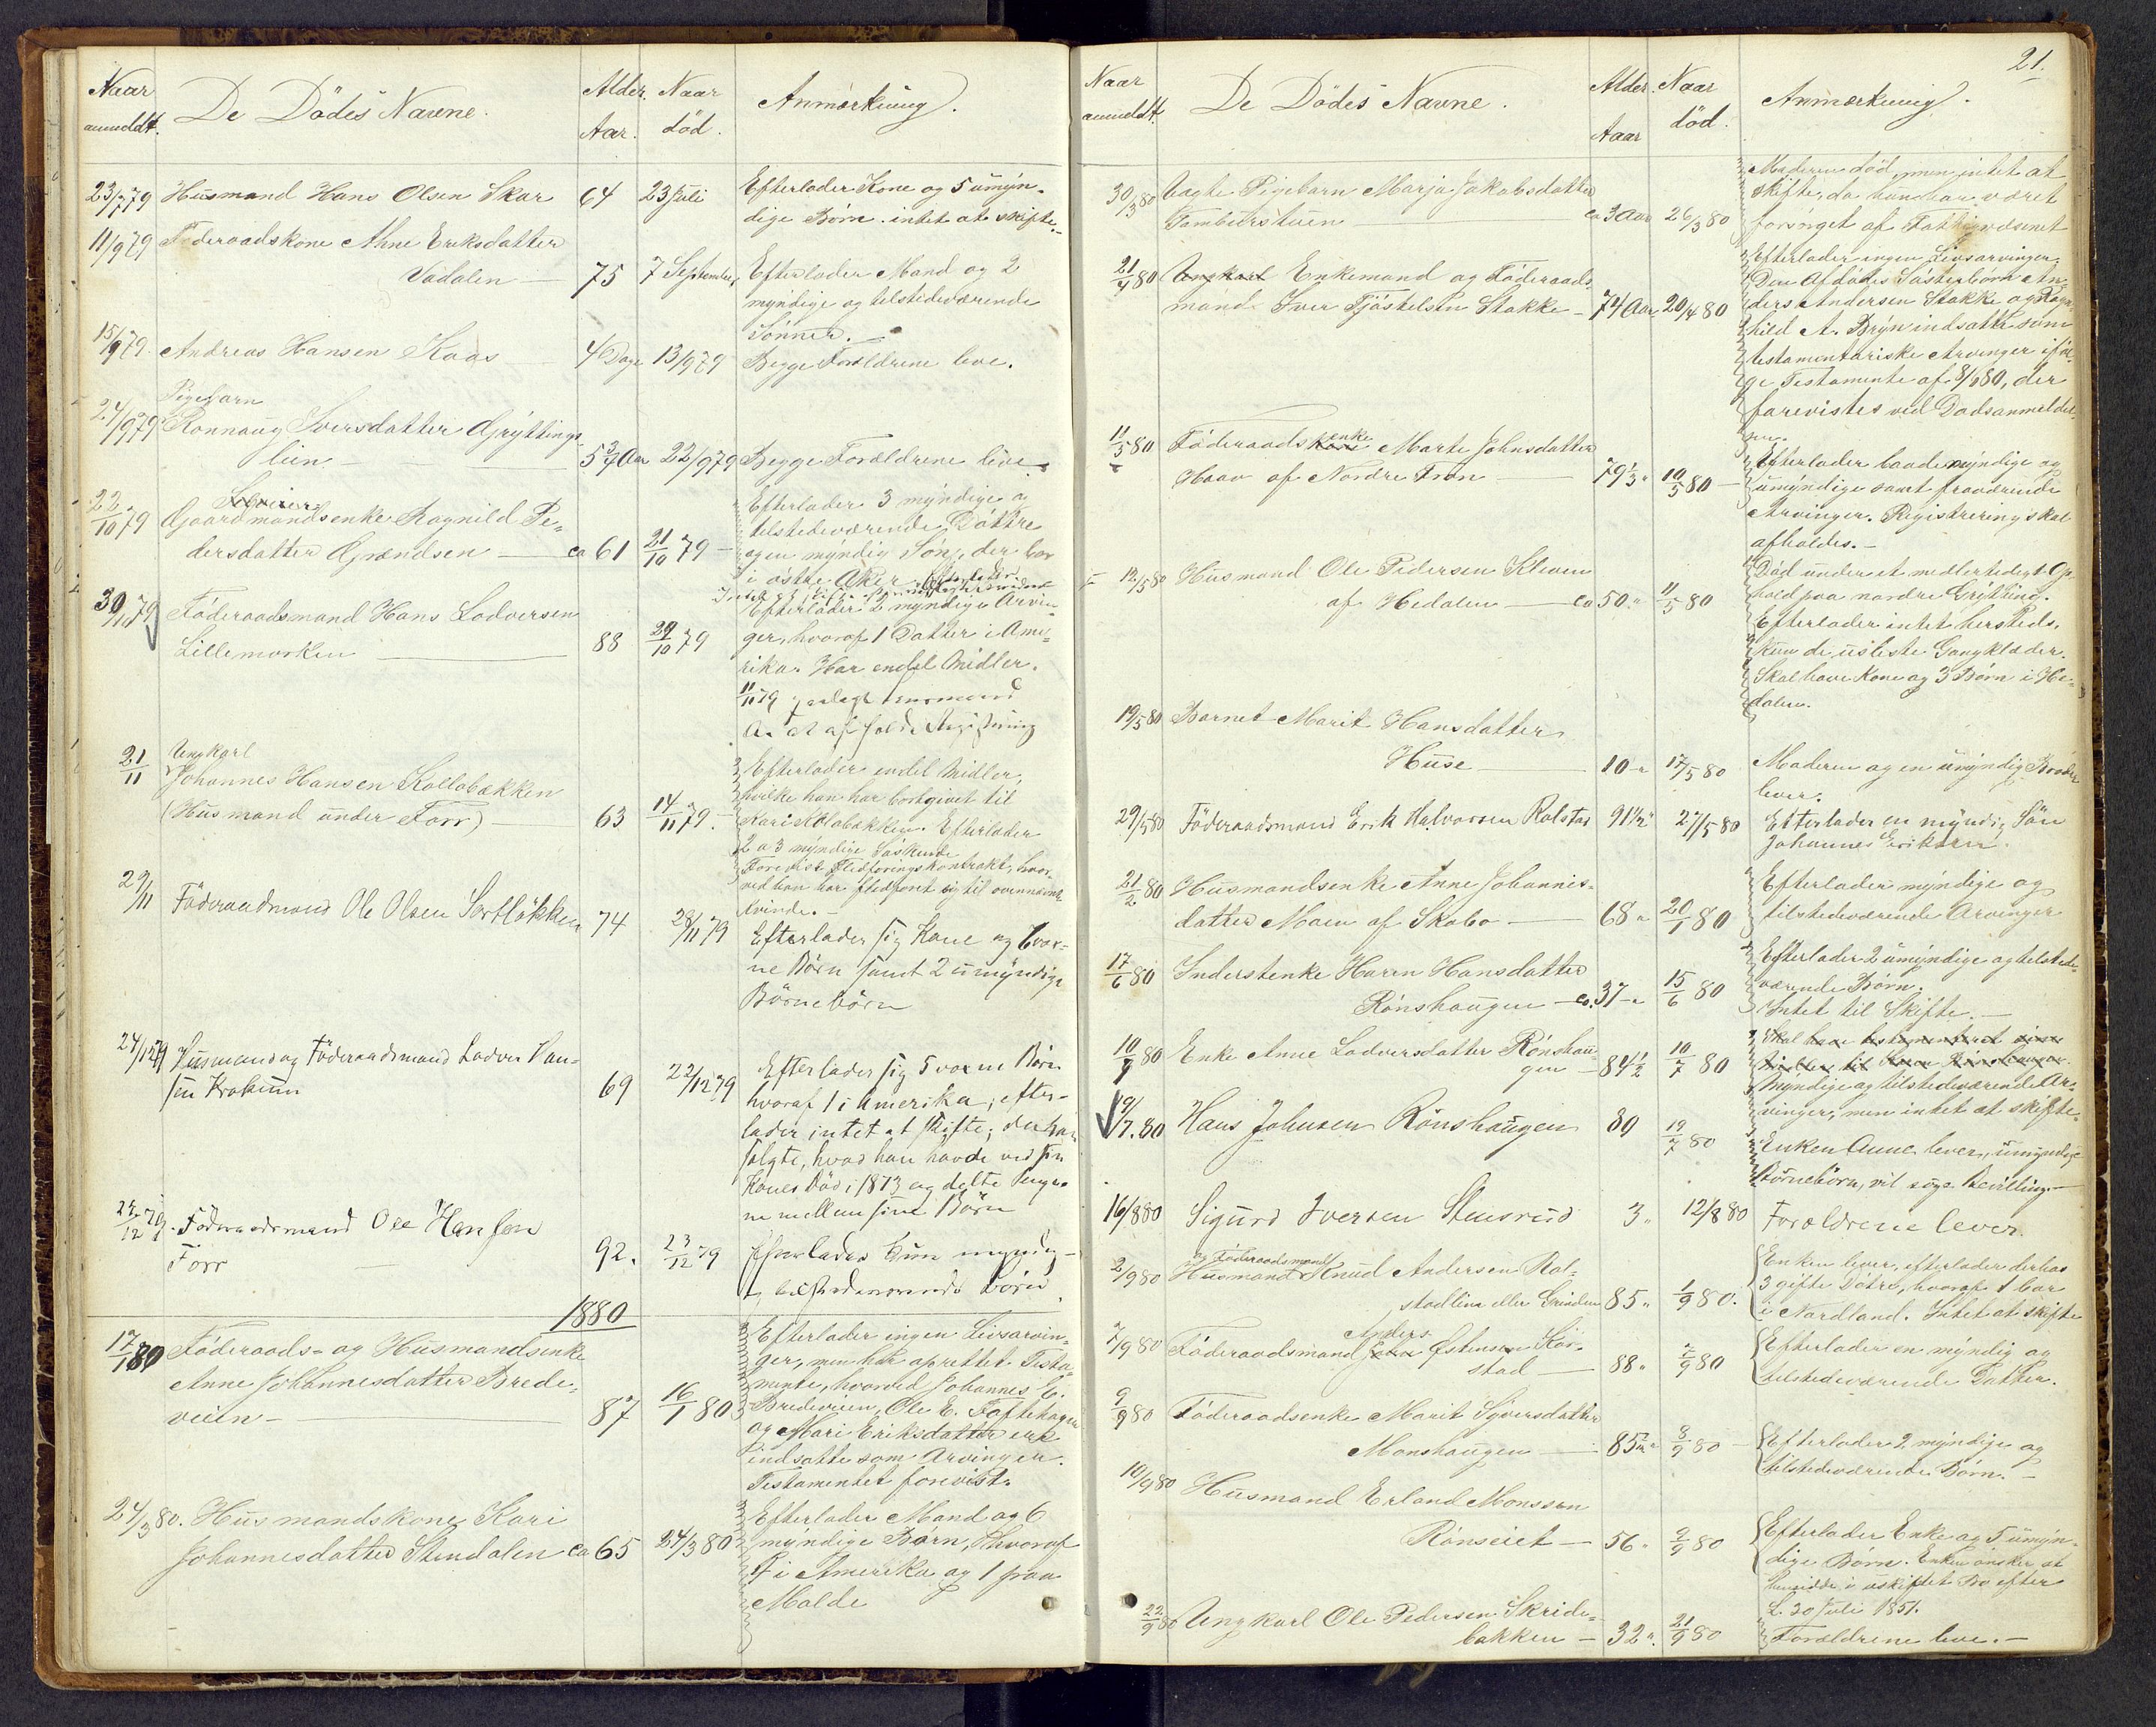 Naar anmeldt. De Dödes Navne. Alder. Aar. Naar död. Anmærkning.
23/7 79 Husmand Hans Olsen Skar 64 23 Juli Efterlader Kone og 5 umyn-
dige Börn. intet at skifte.-
11/9 79 Föderaadskone Ahne Eriksdatter
Vadalen — 75 7 September, Efterlader Mand og 2
myndige og tilstedeværende
Sönner.-
15/9 79. Andreas Hansen Kaas 4 Dage 13/9 79 Begge Forældrene leve.
Pigebarn
24/9 79 Ronnaug Iversdatter Gryttings-
lien — 5 3/4 Aar 22/9 79 Begge Forældrene leve.
22/10 79 Gaardmandsenke Ragnild Pe-
dersdatter Grændsen — ca 61 21/10 79 —
Efterlader 3 myndige og
tilstedeværende Döttre
og en myndig Sön, der bor
i östre Aker
30/10 79 Föderaadsmand Hans Lodversen
Lillemorken — 88 29/10 79
Efterlader 2 myndige Arvin-
ger, hvoraf 1 Datter i Ame-
rika. Har endel Midler.
11/11 79
21/11 Ungkarl
Johannes Hansen Kollobakken
(Husmand under Forr) — 63 14/11 79.
Efterlader endel Midler,
hvilke han har bortgivet til
Kari Kolobakken. Efterlader
2 a 3 myndige Söskende
Forevist Fledföringskontrakt, hvor-
ved han har fledfört sig til ovennævnte
Kvinde.-
29/11 Föderaadmand Ole Olsen Sortlökken 74 28/11 79
Efterlader sig Kone og vox-
ne Börn samt 2 umyndige
Börnebörn
24/12 79 Husmand og Föderaadsmand Lodver Han-
sen Krabum 69 22/12 79
Efterlader sig 5 voxne Börn
hvoraf 1 i Amerika; efter-
lader intet at skifte; da han
solgte, hvad han havde ved sin
Kones Död i 1873 og delte Penge-
ne mellem sine Börn
24/12 79. Föderaadsmand Ole Hansen
Forr — 92. 23/12 79 Efterlader kun myndig-
e, tilstedeværende Börn.
1880
17/1 80 Föderaads- og Husmandsenke
Anne Johannesdatter Brede-
veien — 87 16/1 80
Efterlader ingen Livsarvin-
ger, men har oprettet Testa-
mente, hvorved Johannes E.
Bredeveien, Ole E. Toftehagen
og Mari Eriksdatter ere
indsatte som Arvinger.
Testamentet forevist.
24/3 80. Husmandskone Kari
Johannesdatter Stendalen ca 65 24/3 80
Efterlader Mand og 6
myndige Börn, hvoraf
i Amerika og 1 paa
Molde
21.
Naar anmeldt. De Dödes Navne. Alder. Aaar Naar död. Anmærkning.
30/3 80 Uægte Pigebarn Marja Jakobsdatter
Tamburstuen — ca 3 Aar 26/3 80
Moderen död, men intet at
skifte, da hun har været
forsörget af Fattigvæsenet
21/4 80 Ungkarl Enkemand og Föderaads-
mand Iver Tjöstelsen Stakke — 74 Aar 20/4 80
Efterlader ingen Livsarvinger.
Den Afdödes Sösterbörn An-
ders Andersen Stakke og Ragn-
hild A. Bryn indsatte som
testamentariske Arvinger iföl-
ge Testamente af 8/1 80, der
forevistes ved Dödsanmeldel-
sen.
11/5 80 Föderaadskone enke Marte Johnsdatter
Haav af Nordre Fron — 79 1/3 " 10/5 80 —
Efterlader baade myndige og
umyndige samt fraværende
Arvinger. Registrering skal
afholdes.—
12/5 80 Husmand Ole Pedersen Kleven
af Hedalen — ca 50 " 11/5 80
Död under et midlertidigt Op-
hold paa nordre Grytting.
Efterlader intet hersteds,
kun de usleste Gangklæder.
Skal have Kone og 3 Börn i He-
dalen.
19/5 80 Barnet Marit Hansdatter
Huse — 10 " 17/5 80 Moderen og en umyndig Broder
lever.
29/5 80 Föderaadsmand Erik Halvorsen Rolstad 91 1/2 " 27/5 80 Efterlader en myndig Sön
Johannes Eriksen.
21/2 80 Husmandsenke Anne Johannis-
datter Moen af Skabo — 68 " 20/1 80
Efterlader myndige og
tilstedeværende Arvinger
17/6 80 Inderstenke Karen Hansdatter
Rönshaugen — ca. 37 " 15/6 80
Efterlader 2 umyndige og tilstede-
værende Börn.
Intet til Skifte.—
10/7 80 Enke Anne Lodversdatter Rönshau-
gen — 84 1/2 10/7 80
Skal have testamenteret sine
Midler til
Myndige og tilstedeværende Ar-
vinger, men intet at skifte.
19/7.80 Hans Johnsen Rönshaugen 80 19/7 80
Enken Anne lever, umyndige
Börnebörn, vil söge Bevilling.—
16/8 80 Sigurd Iversen Stensrud 3 " 12/8 80 Forældrene lever.
2/9 80 og Föderaadsmand
Husmand Knud Andersen Rol-
stadlien eller Grinden 85 " 1/9 80.
Enken lever, efterlader derhos
3 gifte Dötre, hvoraf 1 bor
i Nordland. Intet at skifte
7/9 80 Anders
Föderaadsmand Östensen Kor-
stad — 88 " 2/9 80
Efterlader en myndig og
tilstedeværende Datter.
9/9 80 Föderaadsenke Marit Syversdatter
Monshaugen — 85 8/9 80 —
Efterlader 2 myndige og
tilstedeværende Börn.—
10/9 80 Husmand Erland Monssen
Rönseiet — 56 " 9/9 80
Efterlader Enke og 5 umyn-
dige Börn. Enken önsker at
hensidde i uskiftet Bo efter
L. 30 Juli 1851.
22/9 80 Ungkarl Ole Pedersen Skride-
bakken — 32 " 21/9 80 Forældrene leve.—